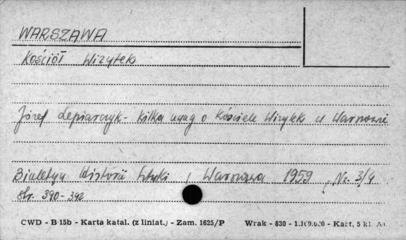 WARSZAWA
Kościół Wizytek
Józef Lepiarczyk - Kilka uwag o kościele Wizytek w Warszawie
Biuletyn Historii Sztuki, Warszawa 1959, Nr. 3/4
str. 390-390
CWD - B 15b - Karta katal. (z liniat.) - Zam. 1625/P Wrak - 830 - Kart. 5 kl.